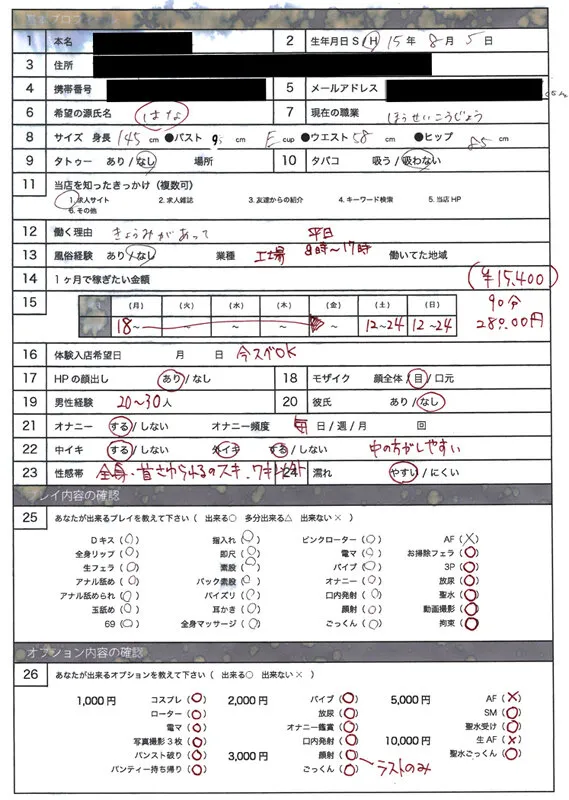 1 本名 2 生年月日 S / H 15年 8月 5日
3 住所
4 携帯番号 5 メールアドレス
6 希望の源氏名 はな 7 現在の職業 ほうせいこうじょう
8 サイズ 身長 145 cm ●バスト cm E cup ●ウエスト 58 cm ●ヒップ 85 cm
9 タトゥー あり / なし 場所 10 タバコ 吸う / 吸わない
11 当店を知ったきっかけ（複数可）
1. 求人サイト 2. 求人雑誌 3. 友達からの紹介 4. キーワード検索 5. 当店 HP
6. その他
12 働く理由 きょうみがあって 平日
13 風俗経験 あり / なし 業種 工場 8時〜17時 働いてた地域
14 1ヶ月で稼ぎたい金額 (¥15,400)
15 (月) (火) (水) (木) (金) (土) (日) 90分
18〜 〜 〜 〜 〜 12〜24 12〜24 28000円
16 体験入店希望日 月 日 今スぐOK
17 HPの顔出し あり / なし 18 モザイク 顔全体 / 目 / 口元
19 男性経験 20〜30人 20 彼氏 あり / なし
21 オナニー する / しない オナニー頻度 毎 日 / 週 / 月 回
22 中イキ する / しない 外イキ する / しない 中の方がしやすい
23 性感帯 全身・首さわられるのスキ、ワキ 24 濡れ やすい / にくい
プレイ内容の確認
25 あなたが出来るプレイを教えて下さい（ 出来る○ 多分出来る△ 出来ない× ）
Dキス (○) 指入れ (○) ピンクローター (○) AF (×)
全身リップ (○) 即尺 (○) 電マ (○) お掃除フェラ (○)
生フェラ (○) 素股 (○) バイブ (○) 3P (○)
アナル舐め (○) バック素股 (○) オナニー (○) 放尿 (○)
アナル舐められ (○) パイズリ (○) 口内発射 (○) 聖水 (○)
玉舐め (○) 耳かき (○) 顔射 (○) 動画撮影 (○)
69 (○) 全身マッサージ (○) ごっくん (○) 拘束 (○)
オプション内容の確認
26 あなたが出来るオプションを教えて下さい（ 出来る○ 出来ない× ）
1,000円 コスプレ (○) 2,000円 バイブ (○) 5,000円 AF (×)
ローター (○) 放尿 (○) SM (○)
電マ (○) オナニー鑑賞 (○) 聖水受け (○)
写真撮影3枚 (○) 口内発射 (○) 10,000円 生AF (×)
パンスト破り (○) 3,000円 顔射 (○) 聖水ごっくん (○)
パンティー持ち帰り (○) ごっくん (○) ラストのみ